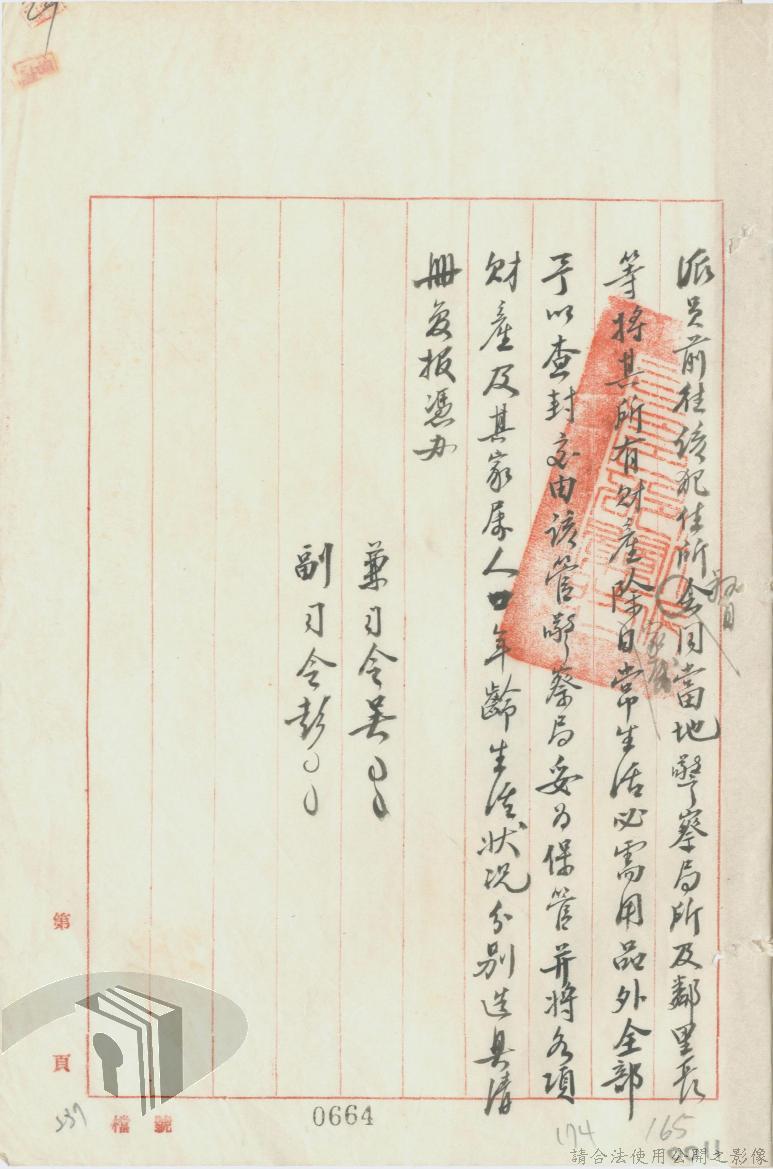 派員前往該犯住所會同當地警察局所及鄰里長
等將其所有財產除日常生活必需用品外全部
家屬
予以查封交由該管警察局妥為保管并將各項
財產及其家屬人口年齡生活狀況分別造具清
冊各報憑办
兼司令吳
副司令彭
第 頁
檔 號
0664
537
174
165
請合法使用公開之影像